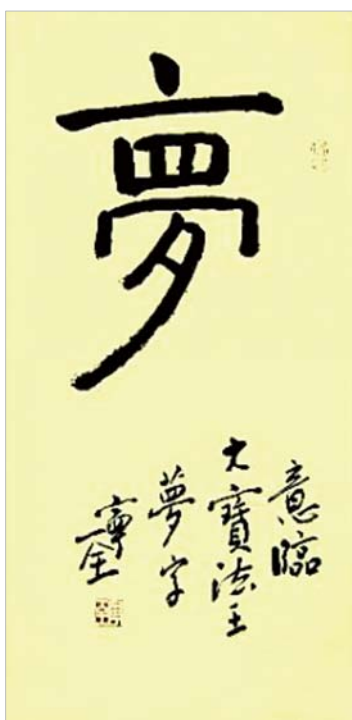 夢
意臨
大寶法王
夢字